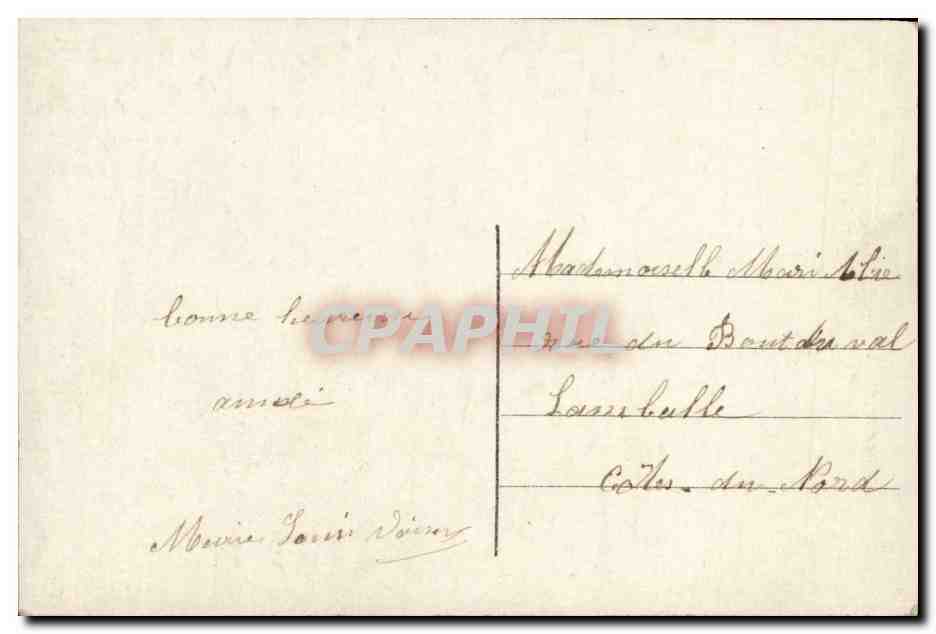 bonne heureuse
année
Marie Louis
Mademoiselle Mari
rue du Bout du val
Lamballe
Côtes-du-Nord
CPAPHIL